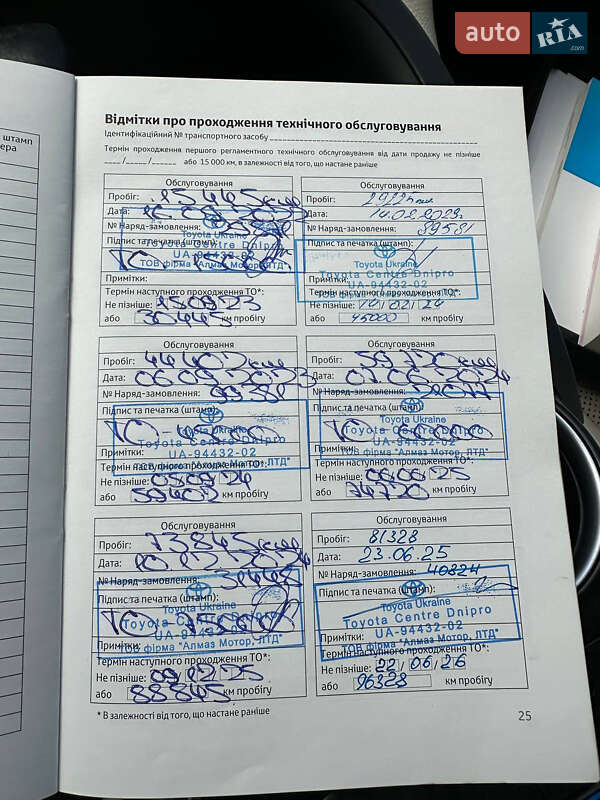 auto RIA .com
штамп
ера
Відмітки про проходження технічного обслуговування
Ідентифікаційний № транспортного засобу
Термін проходження першого регламентного технічного обслуговування від дати продажу не пізніше
___/____/____ або 15 000 км, в залежності від того, що настане раніше
Обслуговування
Пробіг: 15445
Дата:
№ Наряд-замовлення:
Підпис та печатка (штамп):
Toyota Ukraine
Toyota Centre Dnipro
UA-94432-02
ТОВ фірма "Алмаз Мотор, ЛТД"
Примітки:
Термін наступного проходження ТО*:
Не пізніше: 15.09.23
або 30445 км пробігу
Обслуговування
Пробіг: 29725
Дата: 14.02.2023
№ Наряд-замовлення: 39581
Підпис та печатка (штамп):
Toyota Ukraine
Toyota Centre Dnipro
UA-94432-02
ТОВ фірма "Алмаз Мотор, ЛТД"
Примітки:
Термін наступного проходження ТО*:
Не пізніше: 14/02/24
або 45000 км пробігу
Обслуговування
Пробіг: 44402
Дата:
№ Наряд-замовлення:
Підпис та печатка (штамп):
Toyota Ukraine
Toyota Centre Dnipro
UA-94432-02
ТОВ фірма "Алмаз Мотор, ЛТД"
Примітки:
Термін наступного проходження ТО*:
Не пізніше:
або 59402 км пробігу
Обслуговування
Пробіг: 59720
Дата:
№ Наряд-замовлення:
Підпис та печатка (штамп):
Toyota Ukraine
Toyota Centre Dnipro
UA-94432-02
ТОВ фірма "Алмаз Мотор, ЛТД"
Примітки:
Термін наступного проходження ТО*:
Не пізніше:
або 74720 км пробігу
Обслуговування
Пробіг: 73845
Дата:
№ Наряд-замовлення:
Підпис та печатка (штамп):
Toyota Ukraine
Toyota Centre Dnipro
UA-94432-02
ТОВ фірма "Алмаз Мотор, ЛТД"
Примітки:
Термін наступного проходження ТО*:
Не пізніше: 09/12/25
або 88845 км пробігу
Обслуговування
Пробіг: 81328
Дата: 23.06.25
№ Наряд-замовлення: 40824
Підпис та печатка (штамп):
Toyota Ukraine
Toyota Centre Dnipro
UA-94432-02
ТОВ фірма "Алмаз Мотор, ЛТД"
Примітки:
Термін наступного проходження ТО*:
Не пізніше: 22/06/26
або 96328 км пробігу
* В залежності від того, що настане раніше
25